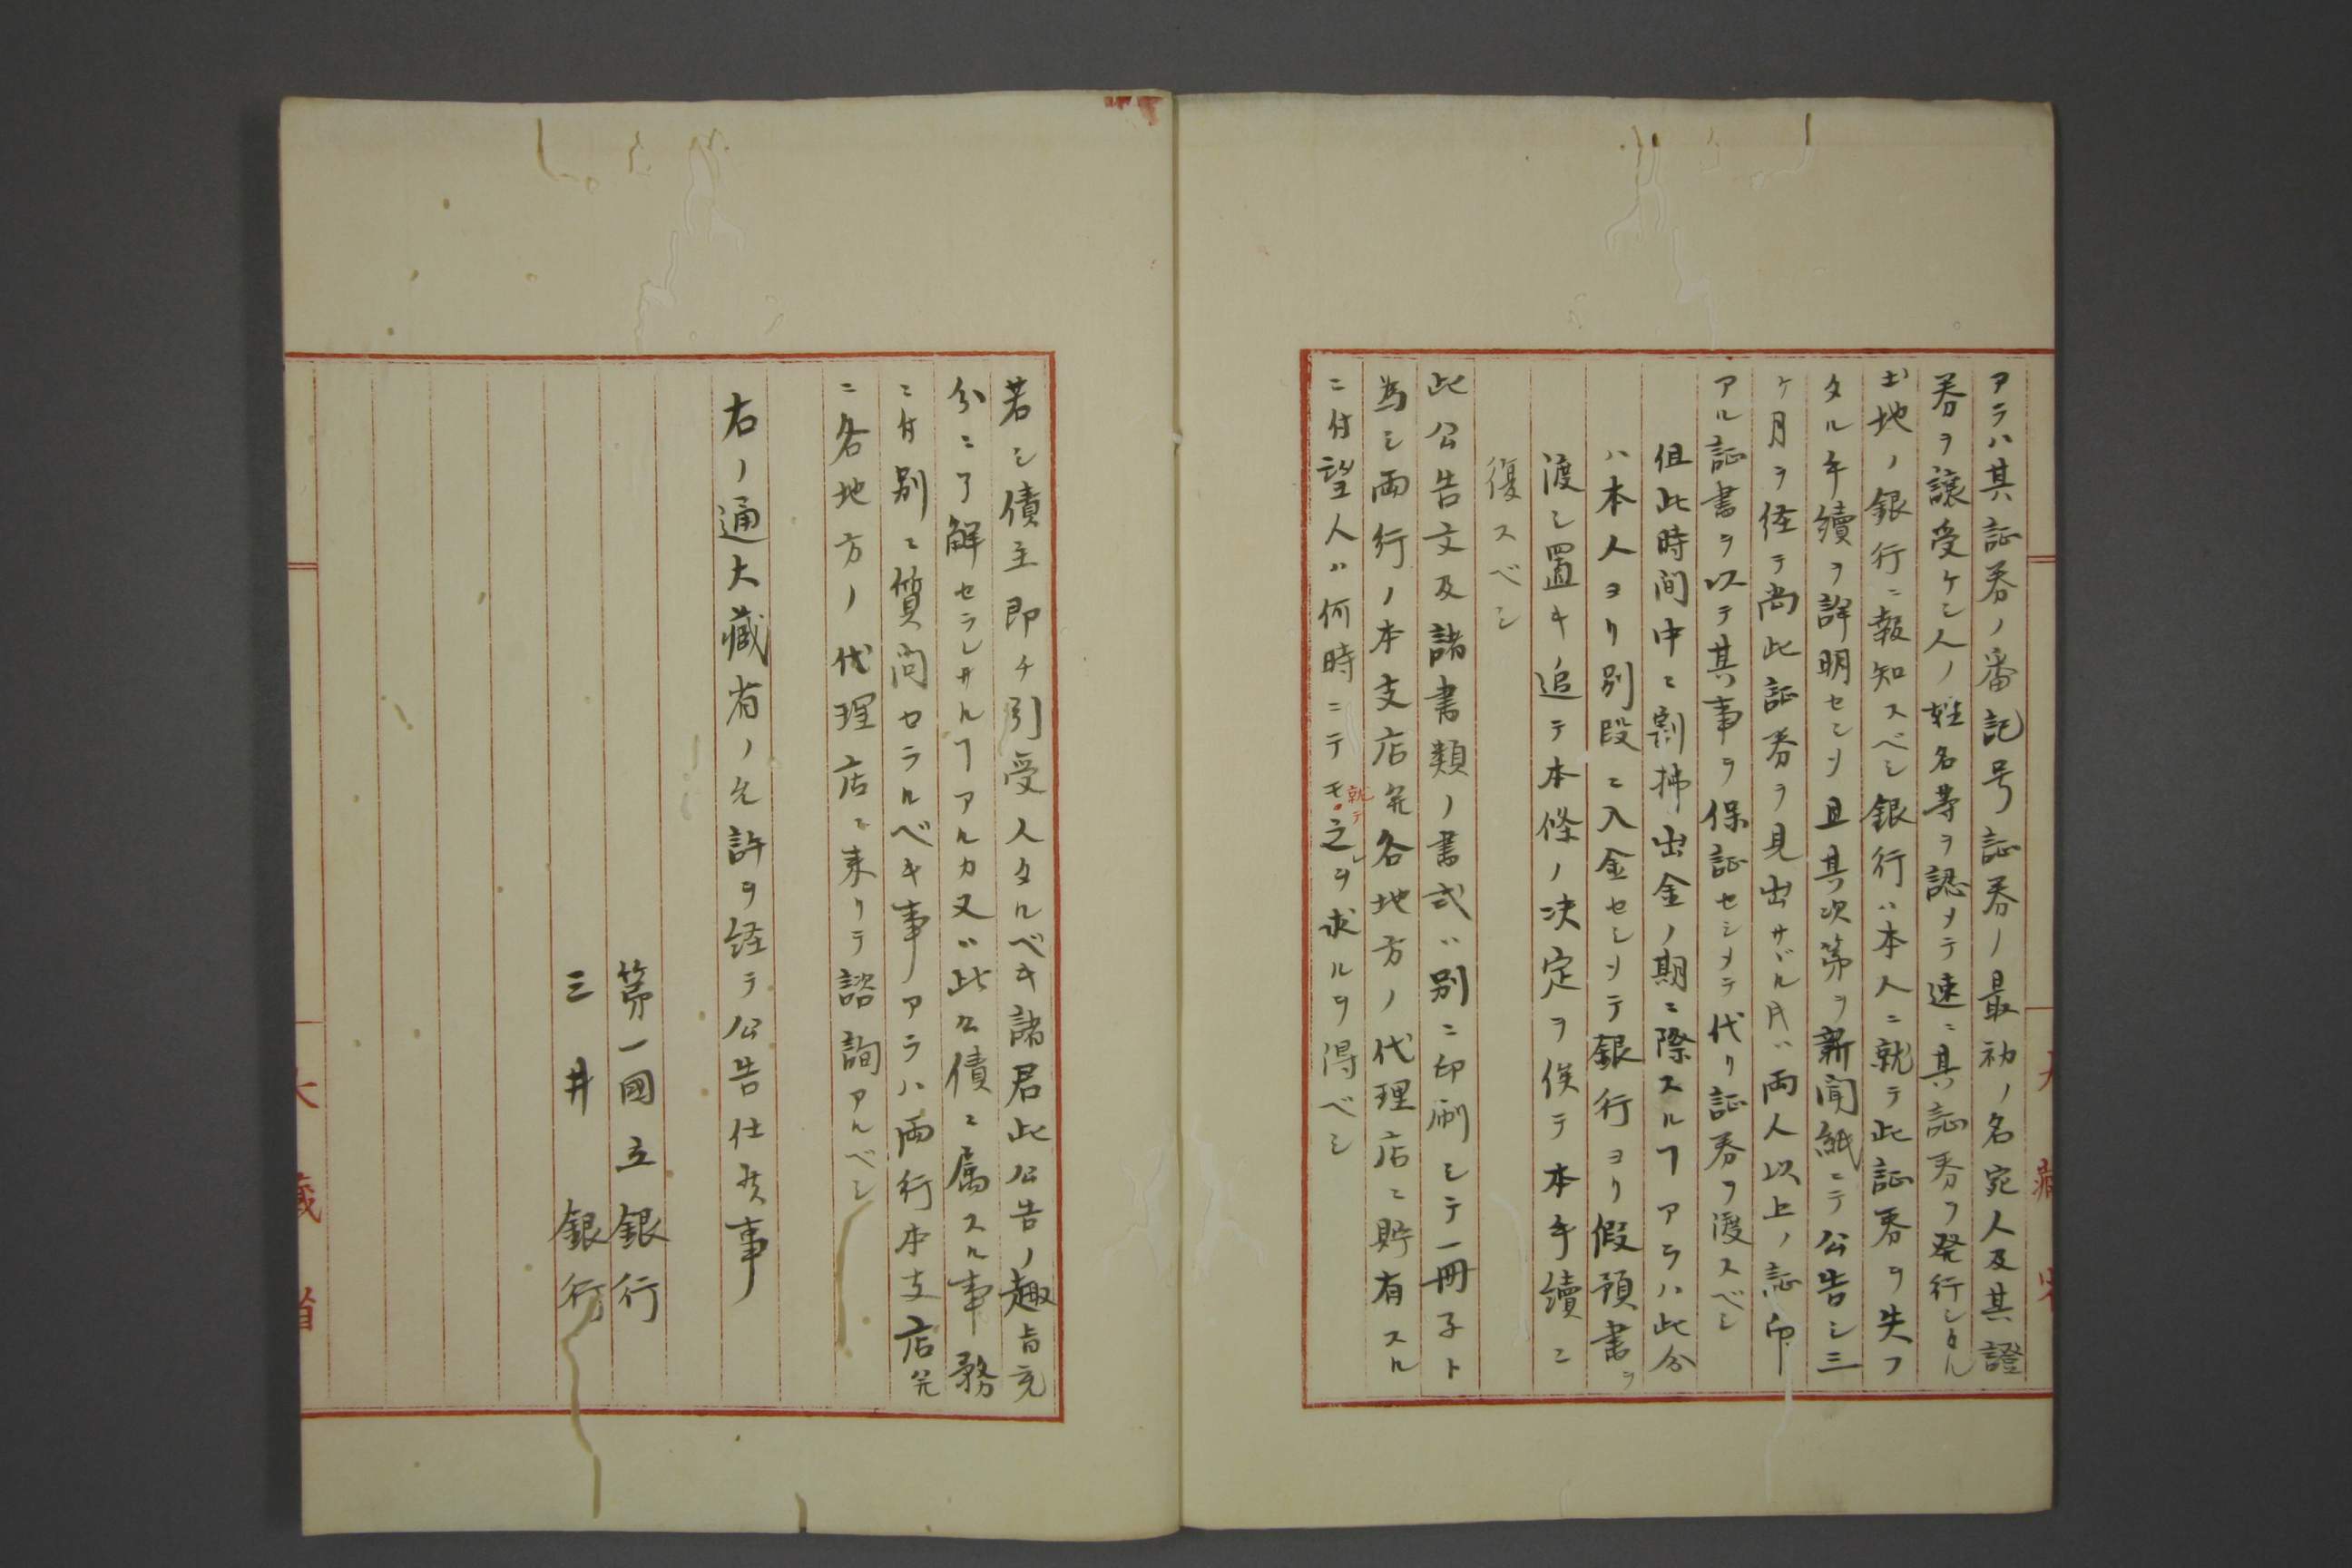 アラハ其証券ノ番記号証券ノ最初ノ名宛人及其證
券ヲ譲受ケシ人ノ姓名等ヲ認メテ速ニ其証券ヲ発行シタル
土地ノ銀行ニ報知スベシ銀行ハ本人ニ就テ此証券ヲ失フ
タル手續ヲ詳明セシメ且其次第ヲ新聞紙ニテ公告シ三
ケ月ヲ経テ尚此証券ヲ見出サヾル片ハ両人以上ノ記印
アル証書ヲ以テ其事ヲ保証セシメテ代リ証券ヲ渡スベシ
但此時間中ニ割拂出金ノ期ニ際スルヿアラハ此分
ハ本人ヨリ別段ニ入金セシメテ銀行ヨリ假預書ヲ
渡シ置キ追テ本條ノ决定ヲ俟テ本手續ニ
復スベシ
此公告文及諸書類ノ書式ハ別ニ印刷シテ一冊子ト
為シ両行ノ本支店并各地方ノ代理店ニ貯有スル
ニ付望人ハ何時ニテモ就テ之ヲ求ルヲ得ベシ
若シ債主即チ引受人タルベキ諸君此公告ノ趣旨充
分ニ了解セラレサルヿアルカ又ハ此公債ニ属スル事務
ニ付別ニ質問セラルベキ事アラハ両行本支店并
ニ各地方ノ代理店ニ来リテ諮詢アルベシ
右ノ通大藏省ノ允許ヲ経テ公告仕候事
第一國立銀行
三井銀行
大藏省